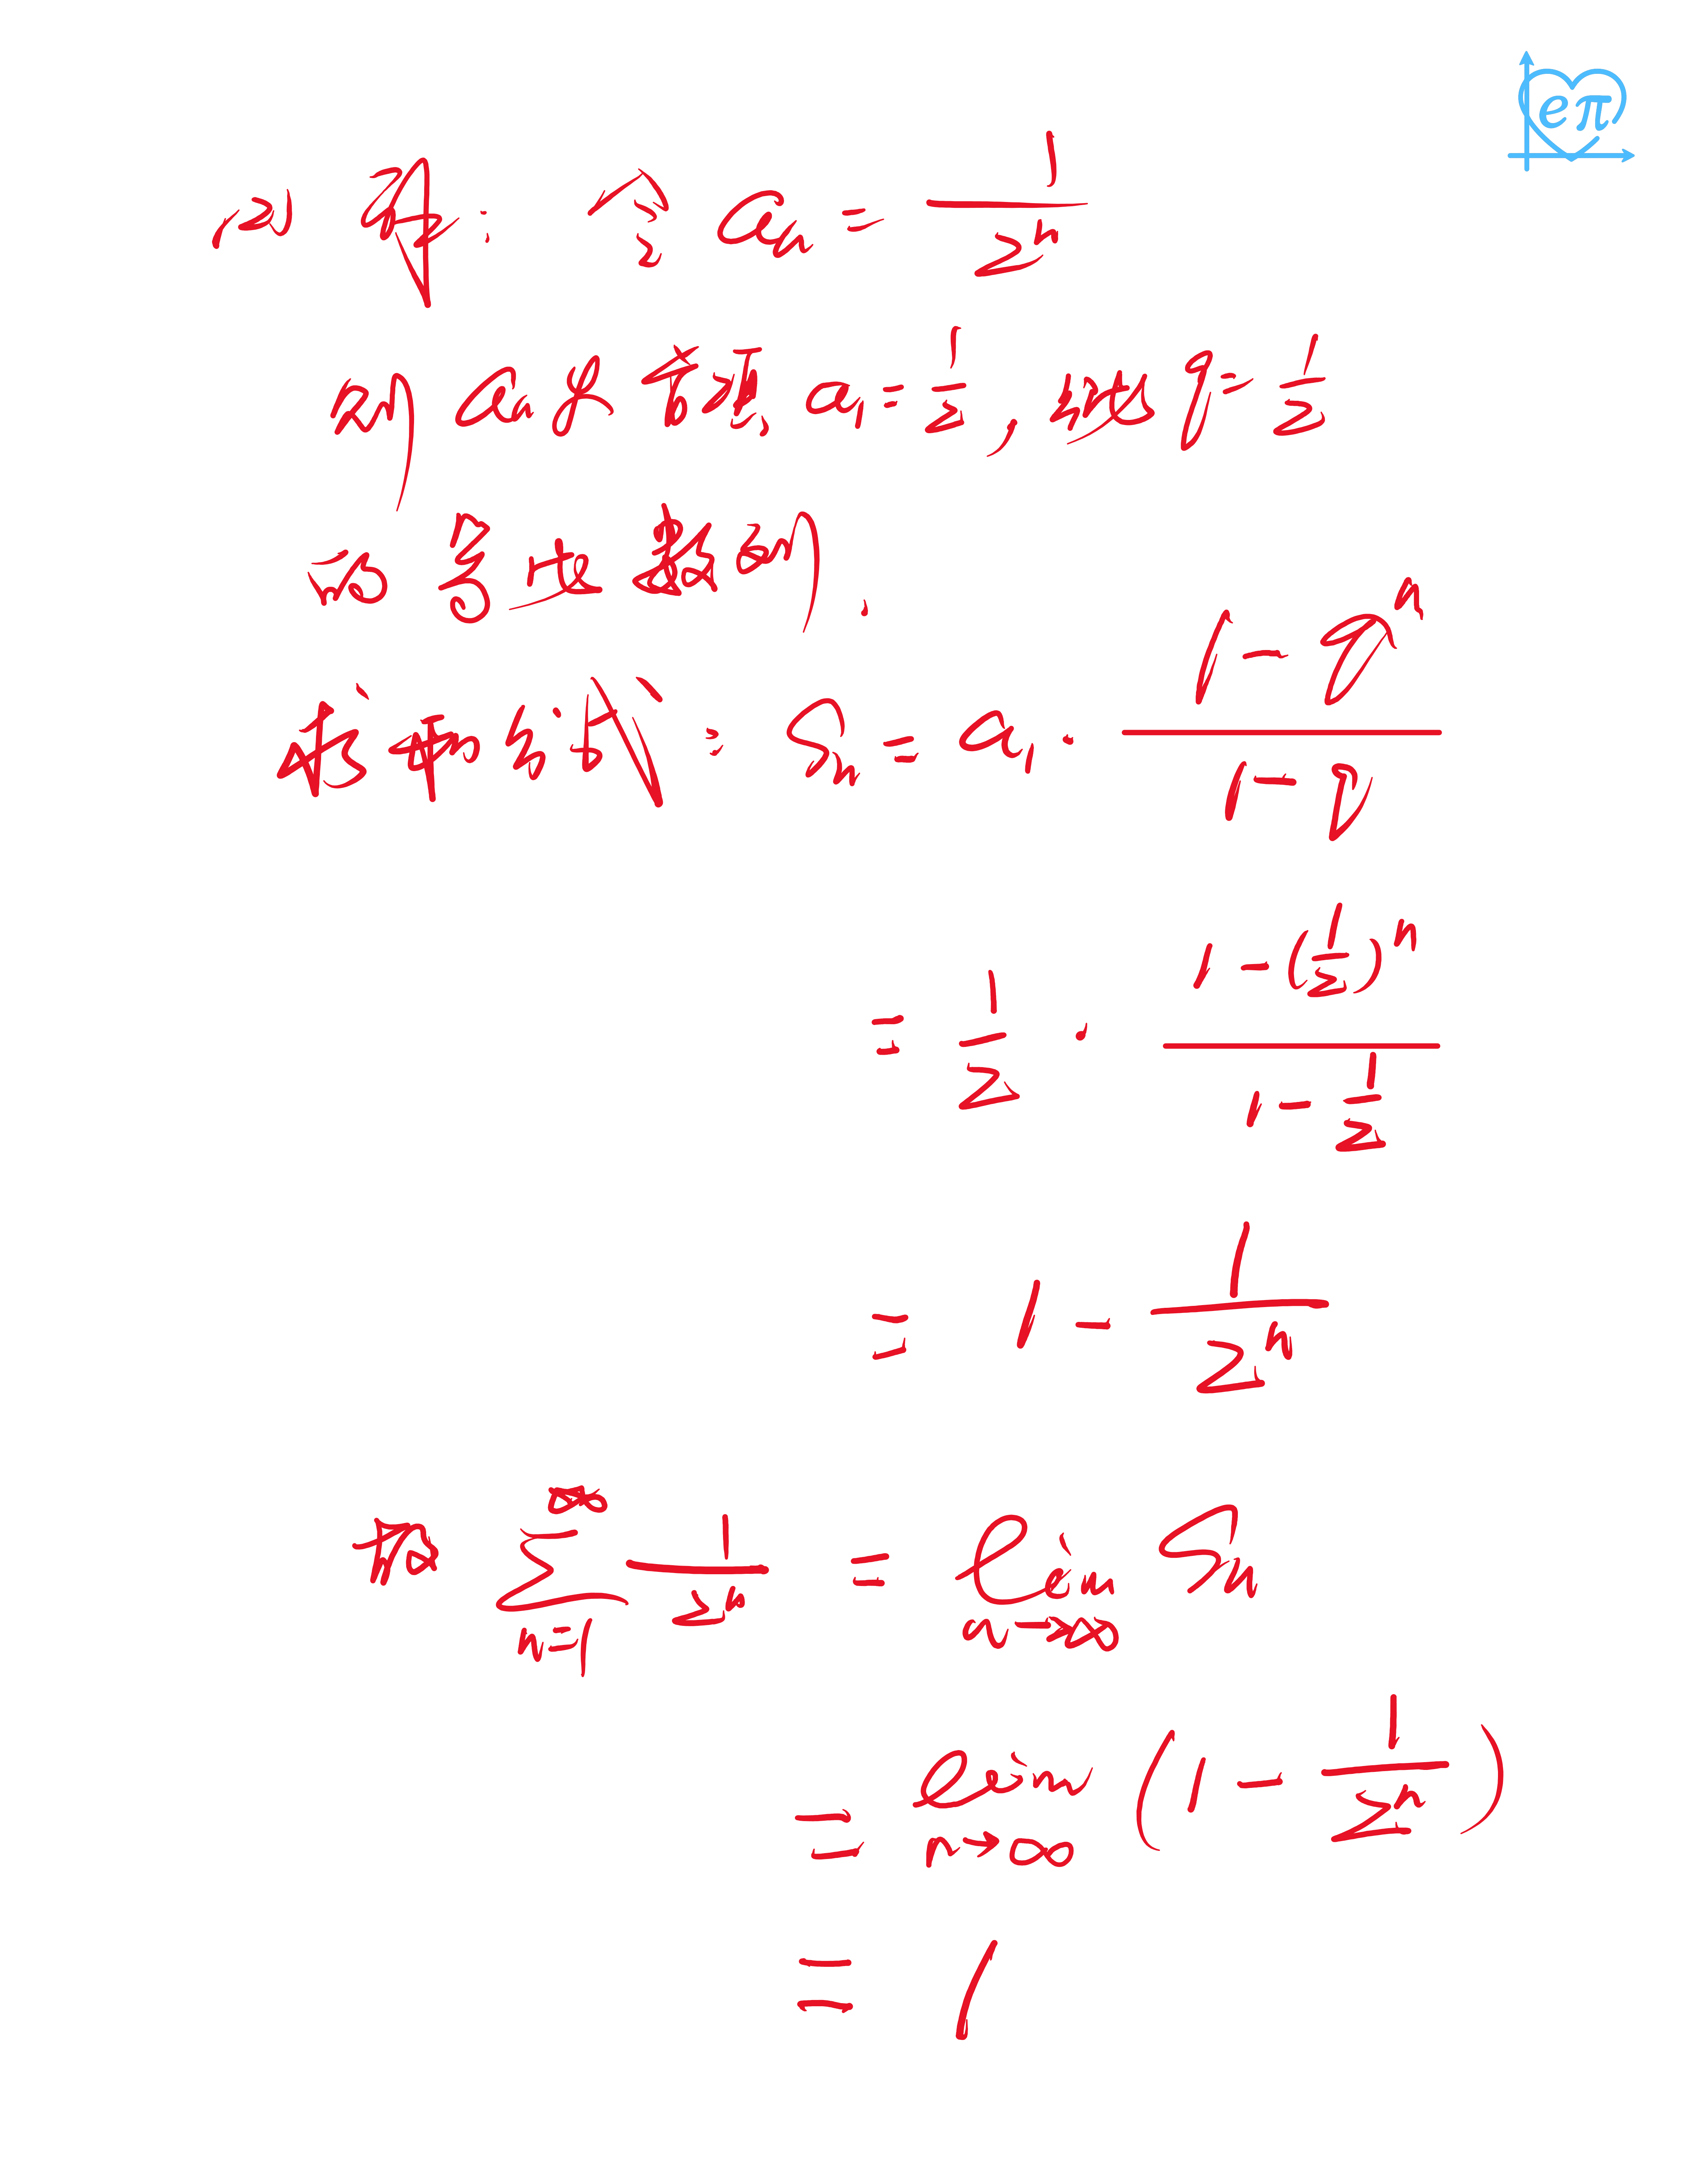 eπ
(2) 解: 令 aₙ = 1/2ⁿ
则 aₙ 是 首项 a₁ = 1/2, 公比 q = 1/2
的 等比数列.
求和公式: Sₙ = a₁ · (1 - qⁿ)/(1 - q)
= 1/2 · (1 - (1/2)ⁿ)/(1 - 1/2)
= 1 - 1/2ⁿ
故 ∑_{n=1}^{∞} 1/2ⁿ = lim_{n→∞} Sₙ
= lim_{n→∞} (1 - 1/2ⁿ)
= 1